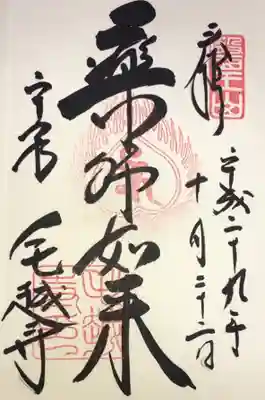 醫王山
奉拝
平成二十九年
十月二十二日
薬師如来
平泉
毛越寺